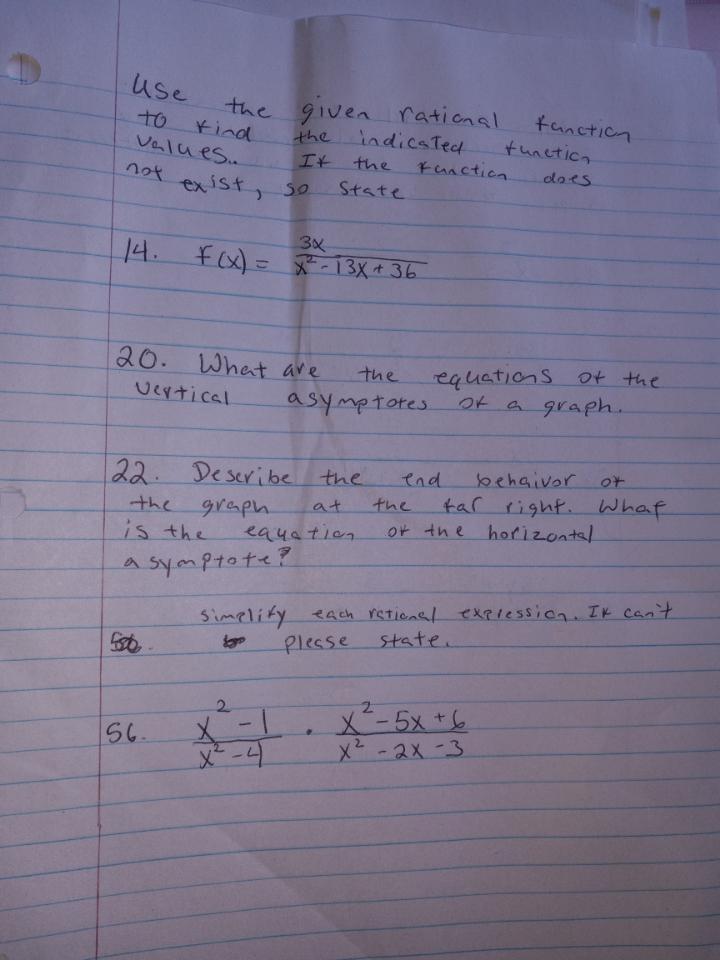 Use the given rational function
to find the indicated function
values.. If the function does
not exist, so state
14. f(x) = 3x / x² - 13x + 36
20. What are the equations of the
vertical asymptotes of a graph.
22. Describe the end behaivor of
the graph at the far right. What
is the equation of the horizontal
asymptote?
simplify each rational expression. If can't
please state.
56. x² - 1 / x² - 4 · x² - 5x + 6 / x² - 2x - 3